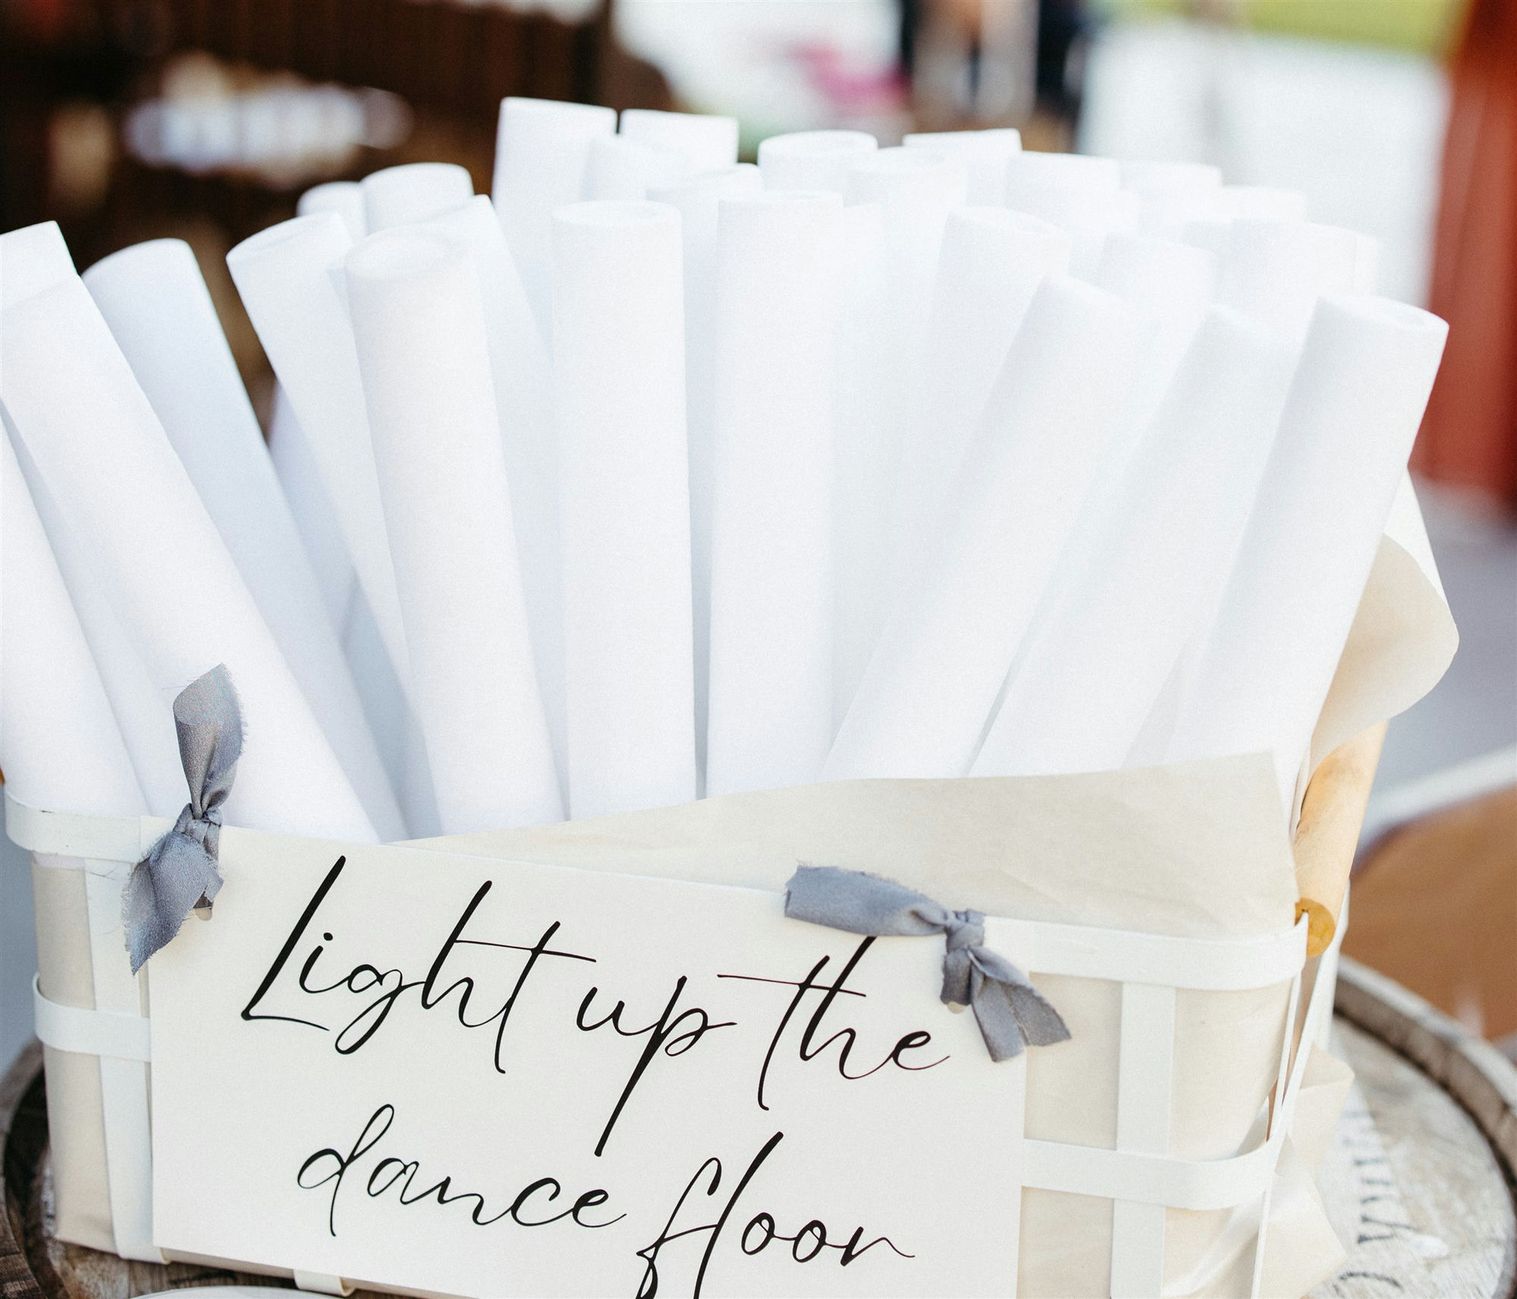 Light up the
dance floor